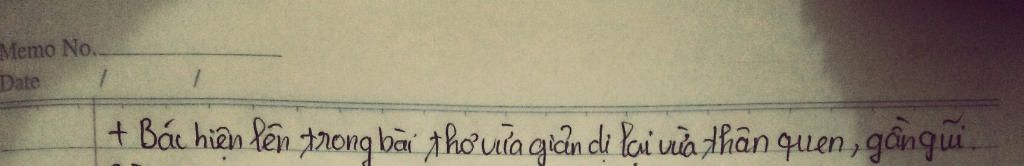 Memo No.
Date / /
+ Bác hiện lên trong bài thơ vừa giản dị lại vừa thân quen, gần gũi.